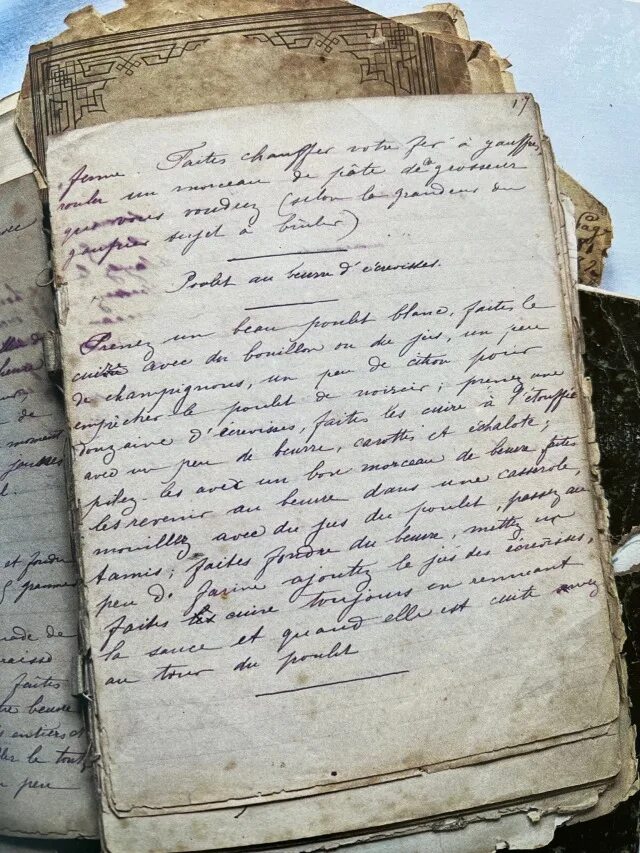 17
ferme. Faites chauffer votre fer à gauffres,
rouler un morceau de pâte de la grosseur
que vous voudrez (selon la grandeur du
gaufrier sujet à brûler)
Poulet au beurre d'écrevisses.
Prenez un beau poulet blanc, faites le
cuire avec du bouillon ou du jus, un peu
de champignons, un peu de citron pour
empêcher le poulet de noircir; prenez une
douzaine d'écrevisses, faites les cuire à l'étouffée
avec un peu de beurre, carottes et échalote;
pilez-les avec un bon morceau de beurre faites
les revenir au beurre dans une casserole,
mouillez avec du jus du poulet, passez au
tamis; faites fondre du beurre, mettez un
peu de farine ajoutez le jus des écrevisses,
faites cuire toujours en remuant
la sauce et quand elle est cuite
au tour du poulet
moment
et fondre
de
faites
beurre
entiers et
le tout
peu